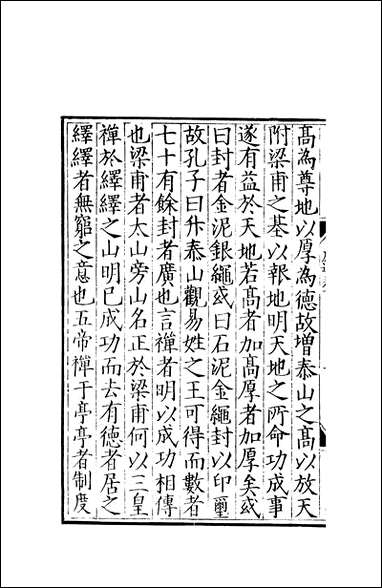 髙為尊地以厚為德故増泰山之髙以放天
附梁甫之基以報地明天地之所命功成事
遂有益於天地若髙者加髙厚者加厚矣或
曰封者金泥銀繩或曰石泥金繩封以印璽
故孔子曰升泰山觀易姓之王可得而數者
七十有餘封者廣也言禪者明以成功相傳
也梁甫者太山旁山名正於梁甫何以三皇
禪於繹繹之山明已成功而去有德者居之
繹繹者無窮之意也五帝禪于亭亭者制度